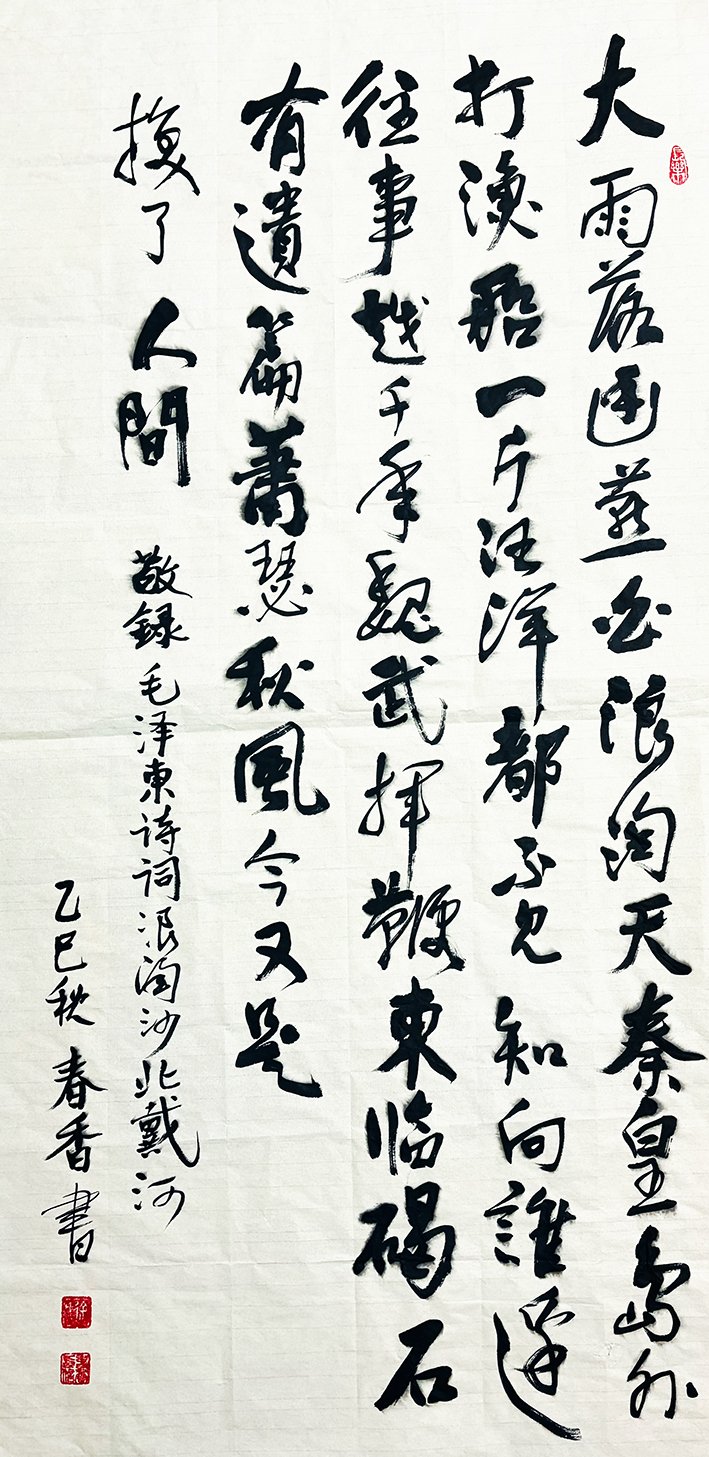 大雨落幽燕白浪淘天秦皇島外
打漁船一片汪洋都不見知向誰邊
往事越千年魏武揮鞭東临碣石
有遺篇蕭瑟秋風今又是
换了人間 敬録毛泽東诗词浪淘沙北戴河
乙巳秋春香書